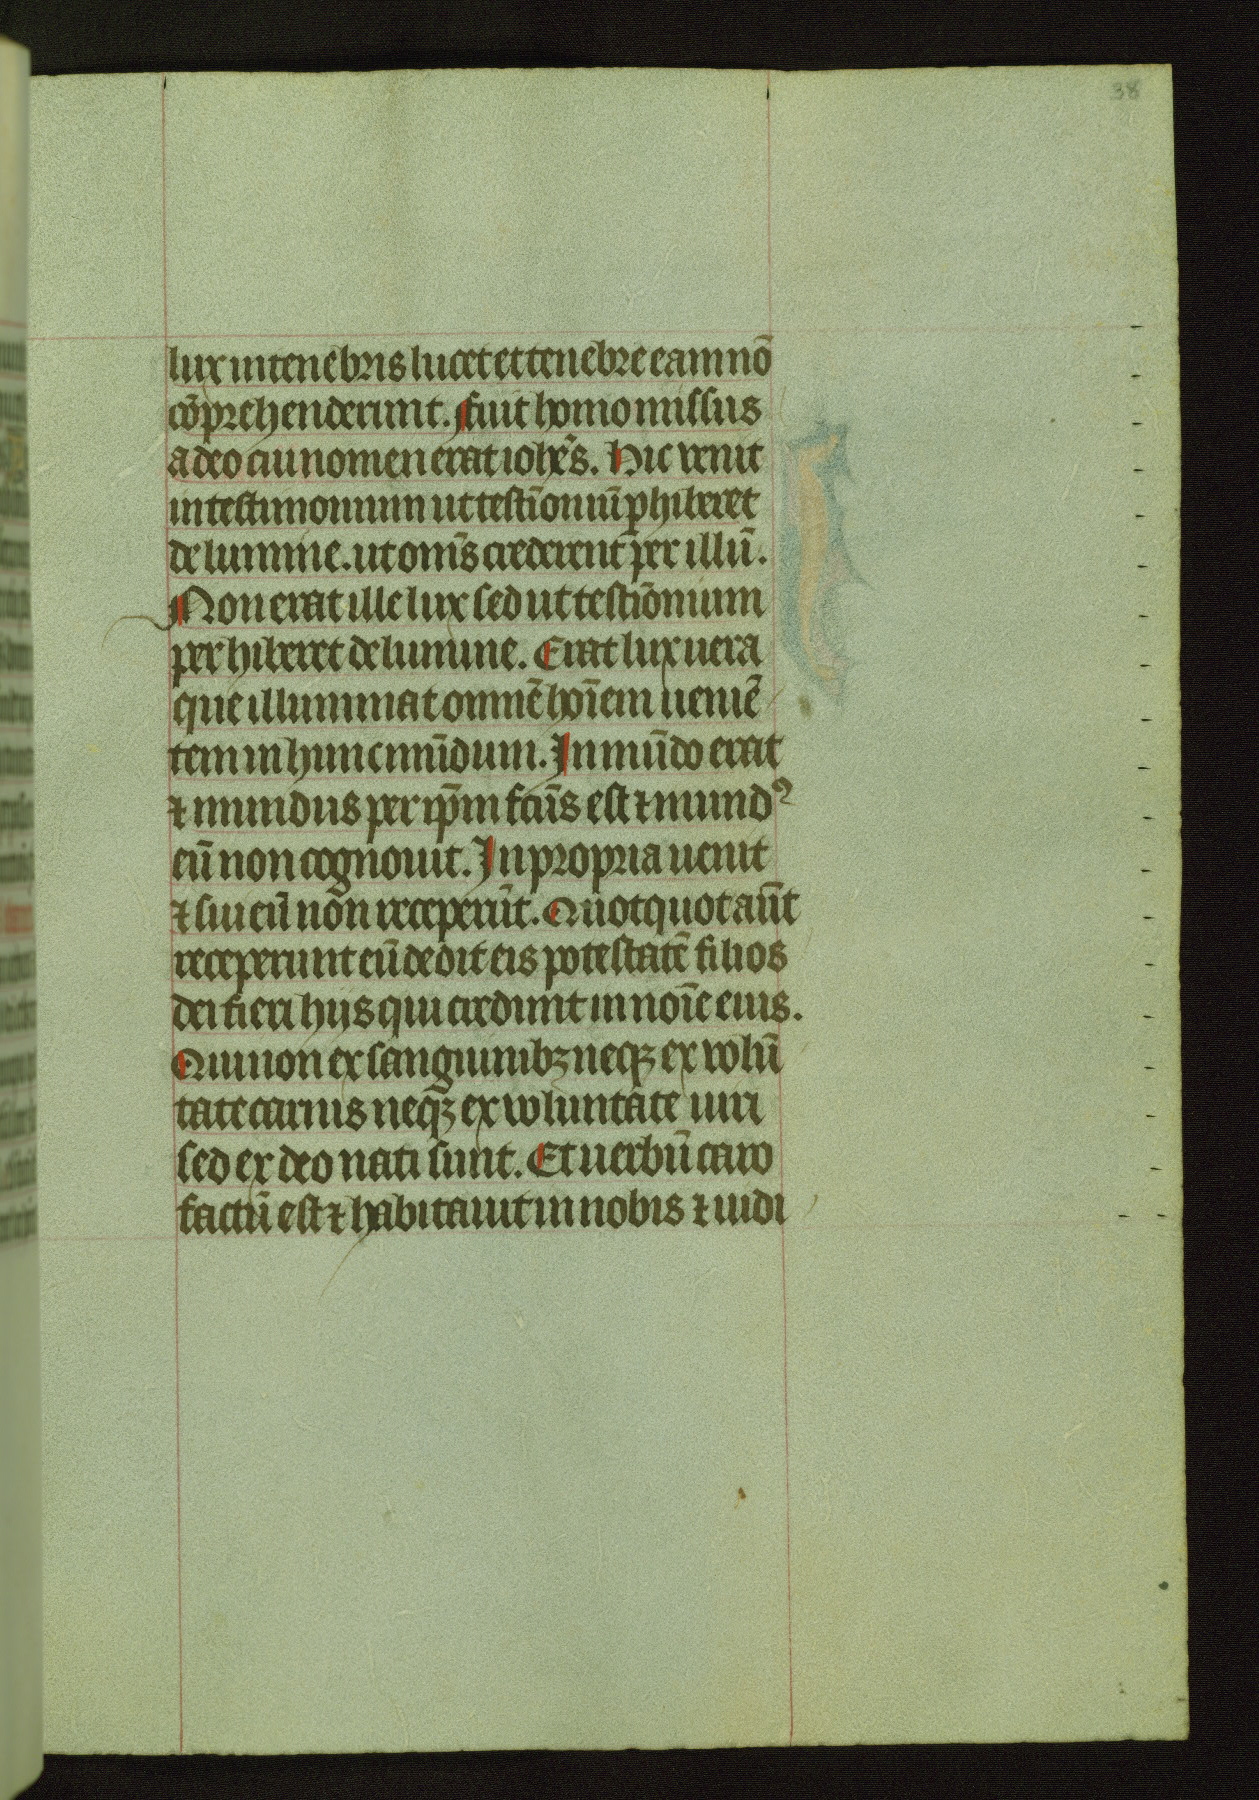 38
lux in tenebris lucet et tenebre eam nō
cōprehenderunt. Fuit homo missus
a deo cui nomen erat iohēs. Hic venit
in testimonium ut testīoniū phiberet
de lumine. ut omīs crederent per illū.
Non erat ille lux sed ut testiōnium
per hiberet de lumine. Erat lux uera
que illuminat omnē hoīem ueniē
tem in hunc mūdum. In mūdo erat
⁊ mundus per ip̄m fcūs est ⁊ mundꝰ
eū non cognouit. In propria uenit
⁊ sui eū non receperūt. Quotquot aūt
receperunt eū dedit eis potestatē filios
dei fieri hijs qui credunt in noīe eius.
Qui non ex sanguinibꝫ neqꝫ ex volū
tate carnis neqꝫ ex voluntate uiri
sed ex deo nati sunt. Et uerbū caro
factū est ⁊ habitauit in nobis ⁊ uidi